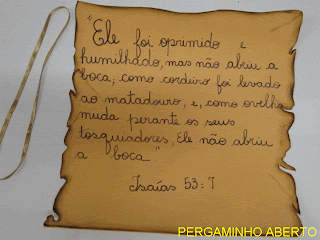 "Ele foi oprimido e
humilhado, mas não abriu a
boca; como cordeiro foi levado
ao matadouro, e, como ovelha
muda perante os seus
tosquiadores, Ele não abriu
a boca"
Isaías 53:7
PERGAMINHO ABERTO